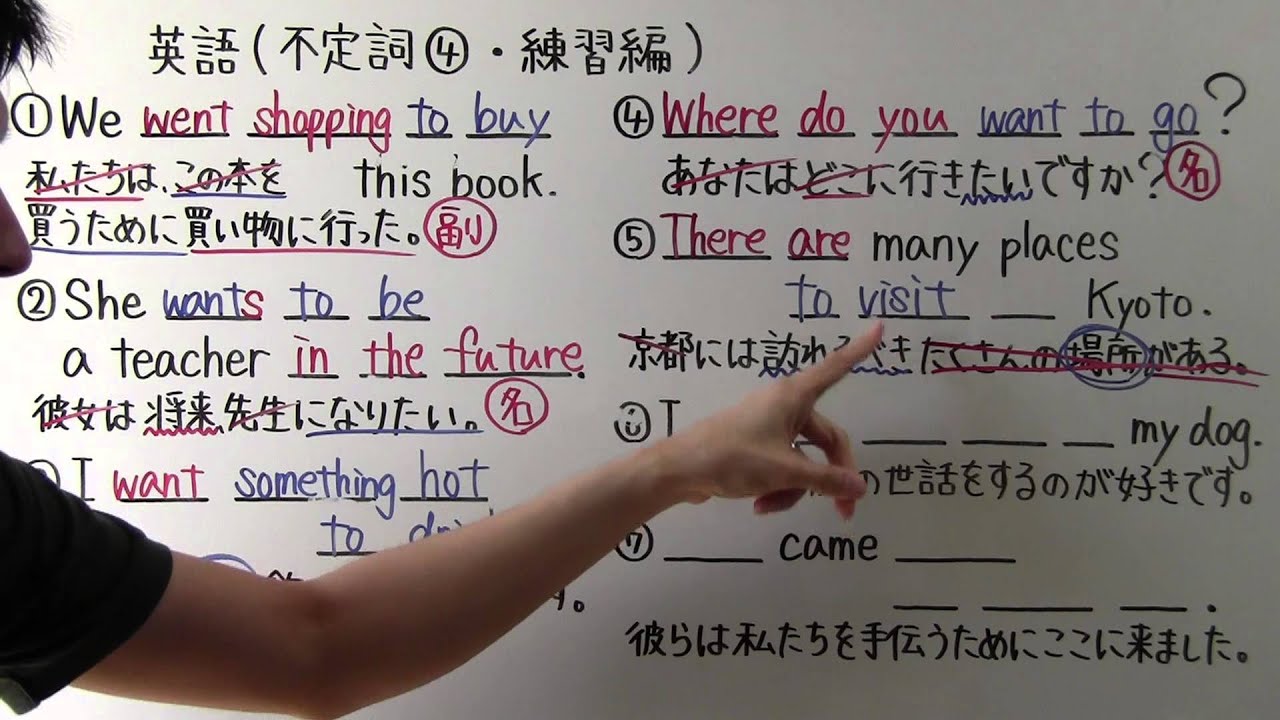 英語(不定詞④・練習編)
①We went shopping to buy
this book.
私たちは、この本を
買うために買い物に行った。副
②She wants to be
a teacher in the future.
彼女は将来先生になりたい。名
I want something hot
to
す。
④Where do you want to go?
あなたはどこに行きたいですか?名
⑤There are many places
to visit Kyoto.
京都には訪れるべきたくさんの場所がある。
I my dog.
の世話をするのが好きです。
⑦ came
.
彼らは私たちを手伝うためにここに来ました。